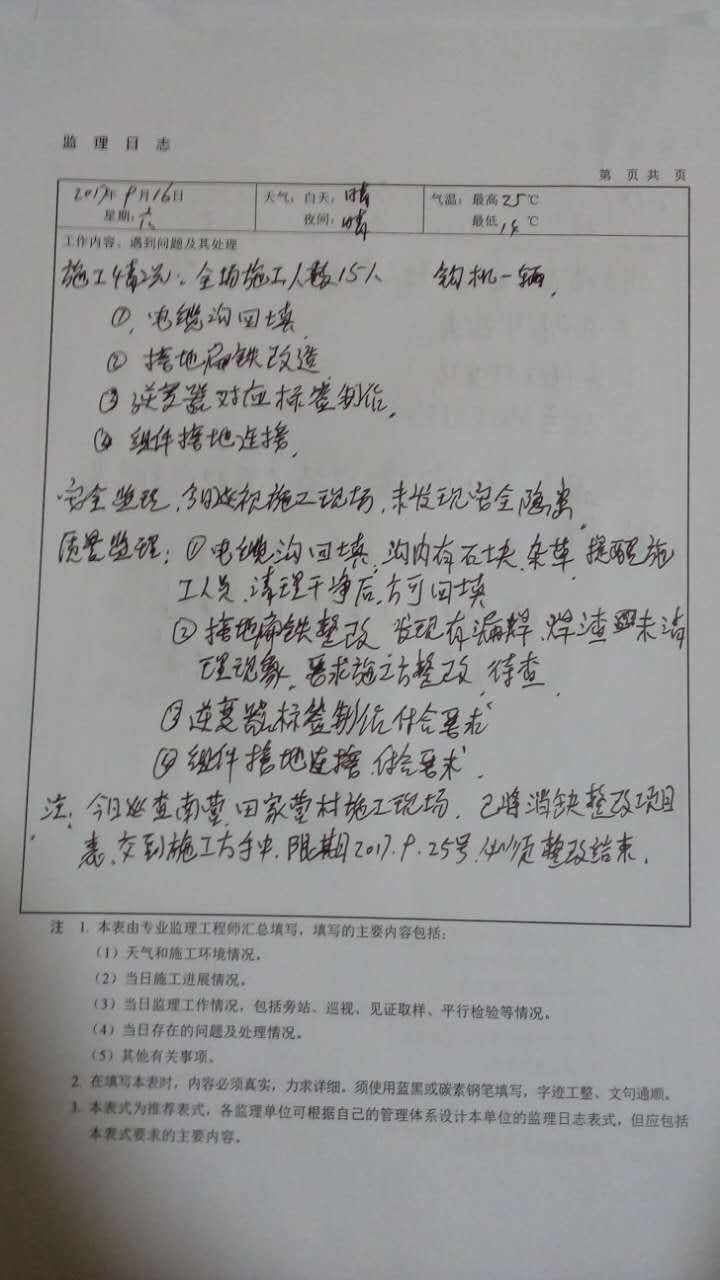 监 理 日 志
第 页 共 页
2017年 9月16日 天气：白天：晴 气温：最高25℃
星期：六 夜间：晴 最低14℃
工作内容、遇到问题及其处理
施工情况：全场施工人数15人 钩机一辆，
①、电缆沟回填
② 接地扁铁改造
③ 逆变器对应标签制作，
④ 组件接地连接，
安全监理，今日巡视施工现场，未发现安全隐患，
质量监理：①电缆沟回填，沟内有石块、杂草，提醒施
工人员，清理干净后，方可回填
②接地扁铁整改 发现有漏焊，焊渣未清
理现象，要求施工方整改，待查
③逆变器标签制作符合要求
④ 组件接地连接，符合要求．
注：今日巡查南营，田家营村施工现场，已将消缺整改项目
表，交到施工方手中，限期2017.9.25号，必须整改结束．
注 1. 本表由专业监理工程师汇总填写，填写的主要内容包括：
（1）天气和施工环境情况。
（2）当日施工进展情况。
（3）当日监理工作情况，包括旁站、巡视、见证取样、平行检验等情况。
（4）当日存在的问题及处理情况。
（5）其他有关事项。
2. 在填写本表时，内容必须真实，力求详细。须使用蓝黑或碳素钢笔填写，字迹工整、文句通顺。
3. 本表式为推荐表式，各监理单位可根据自己的管理体系设计本单位的监理日志表式，但应包括
本表式要求的主要内容。